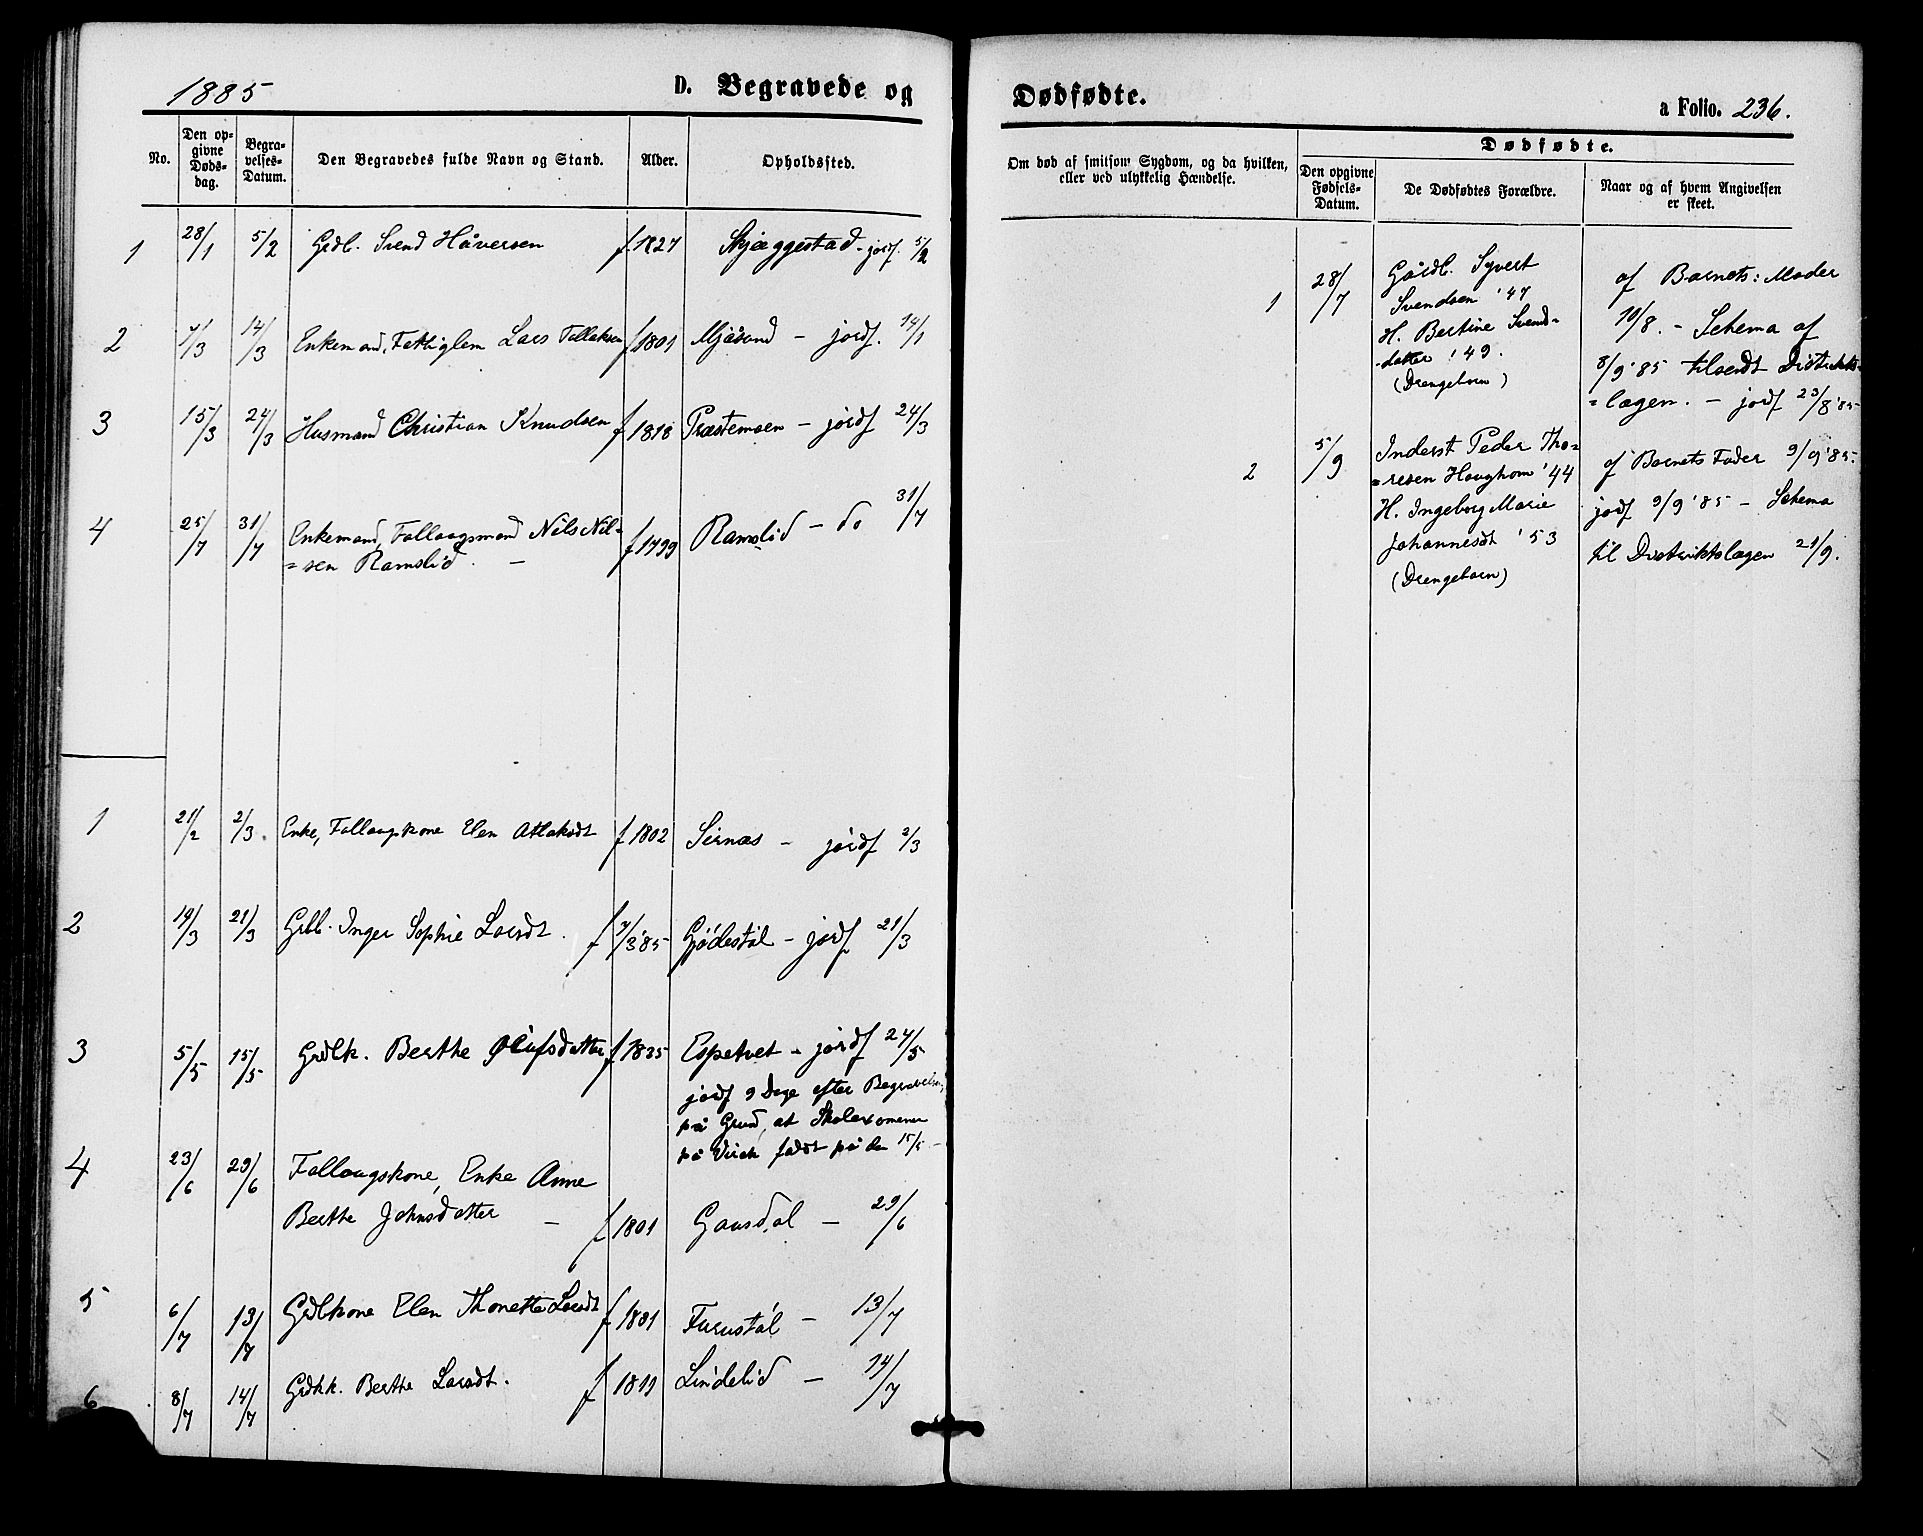 1885
D. Begravede og
No.
Den op-
givne
Døds-
dag.
Begra-
velses-
Datum.
Den Begravedes fulde Navn og Stand.
Alder.
Opholdssted.
1 28/1 5/2 Grdb. Svend Håversen f. 1827 Skjæggestad - jordf. 5/2
2 7/3 14/3 Enkemand, Fattiglem Lars Tallaksen f 1801 Mjåsund - jordf. 14/1
3 15/3 24/3 Husmand Christian Knudsen f 1818 Præstemoen - jordf 24/3
4 25/7 31/7 Enkemand, Follaugsmand Nils Nil= f 1799 Ramslid - do 31/7
=sen Ramslid. -
1 21/2 2/3. Enke, Follaugskone Elen Atlaksdt f 1802 Sirnæs - jordf 2/3
2 19/3 21/3 Grdb. Inger Sophie Larsdt. f 7/3 '85 Gjødestøl - jordf 21/3
3 5/5 15/5 Grdbk. Berthe Olufsdatter f 1835 Espetvet - jordf 24/5
jordf 9 Dage efter Begravelsen,
på Grund, at Skolexamenen
på Virak faldt på den 15/5 -
4 23/6 29/6 Follaugskone, Enke Anne
Berthe Johnsdatter - f 1801 Gausdal - 29/6
5 6/7 13/7 Grdbkone Elen Thonette Larsdt f 1801 Furustøl - 13/7
6 8/7 14/7 Grdbk. Berthe Larsdt. f 1811 Lindelid - 14/7
Dødfødte.
a Folio. 236.
Om død af smitsom Sygdom, og da hvilken,
eller ved ulykkelig Hændelse.
Dødfødte.
Den opgivne
Fødsels-
Datum.
De Dødfødtes Forældre.
Naar og af hvem Angivelsen
er skeet.
1 28/7 Gårdb. Syvert
Svendsen '47
H. Bertine Svend-
-datter '49.
(Drengebarn)
af Barnets: Moder
10/8. - Schema af
8/9 '85 tilsendt Distrikts=
=lægen. - jordf 23/8 '85
2 5/9 Inderst Peder Tho=
=resen Haughom '44
H. Ingeborg Marie
Johannesdt '53
(Drengebarn)
af Barnets Fader 9/9 '85.
jordf 9/9 '85 - Schema
til Distriktslægen 21/9.